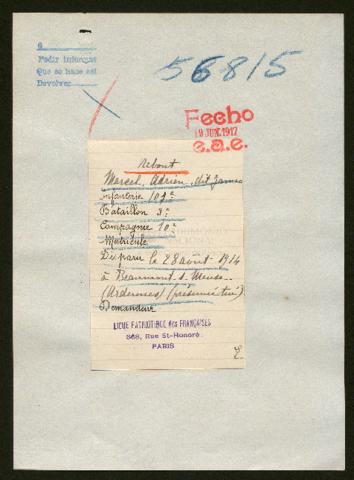 a
Pedir informes
Que se hace así
Devolver
56815
Fecho
19 JUN. 1917
e.a.e.
Rebout
Marcel, Adrien, dit James
Infanterie 101e
Bataillon 3e
Compagnie 10e
Matricule
Disparu le 28 août 1914
à Beaumont s. Meuse
(Ardennes) (présumé tué)
Demandeur
LIGUE PATRIOTIQUE des FRANÇAISES
368, Rue St-Honoré
PARIS